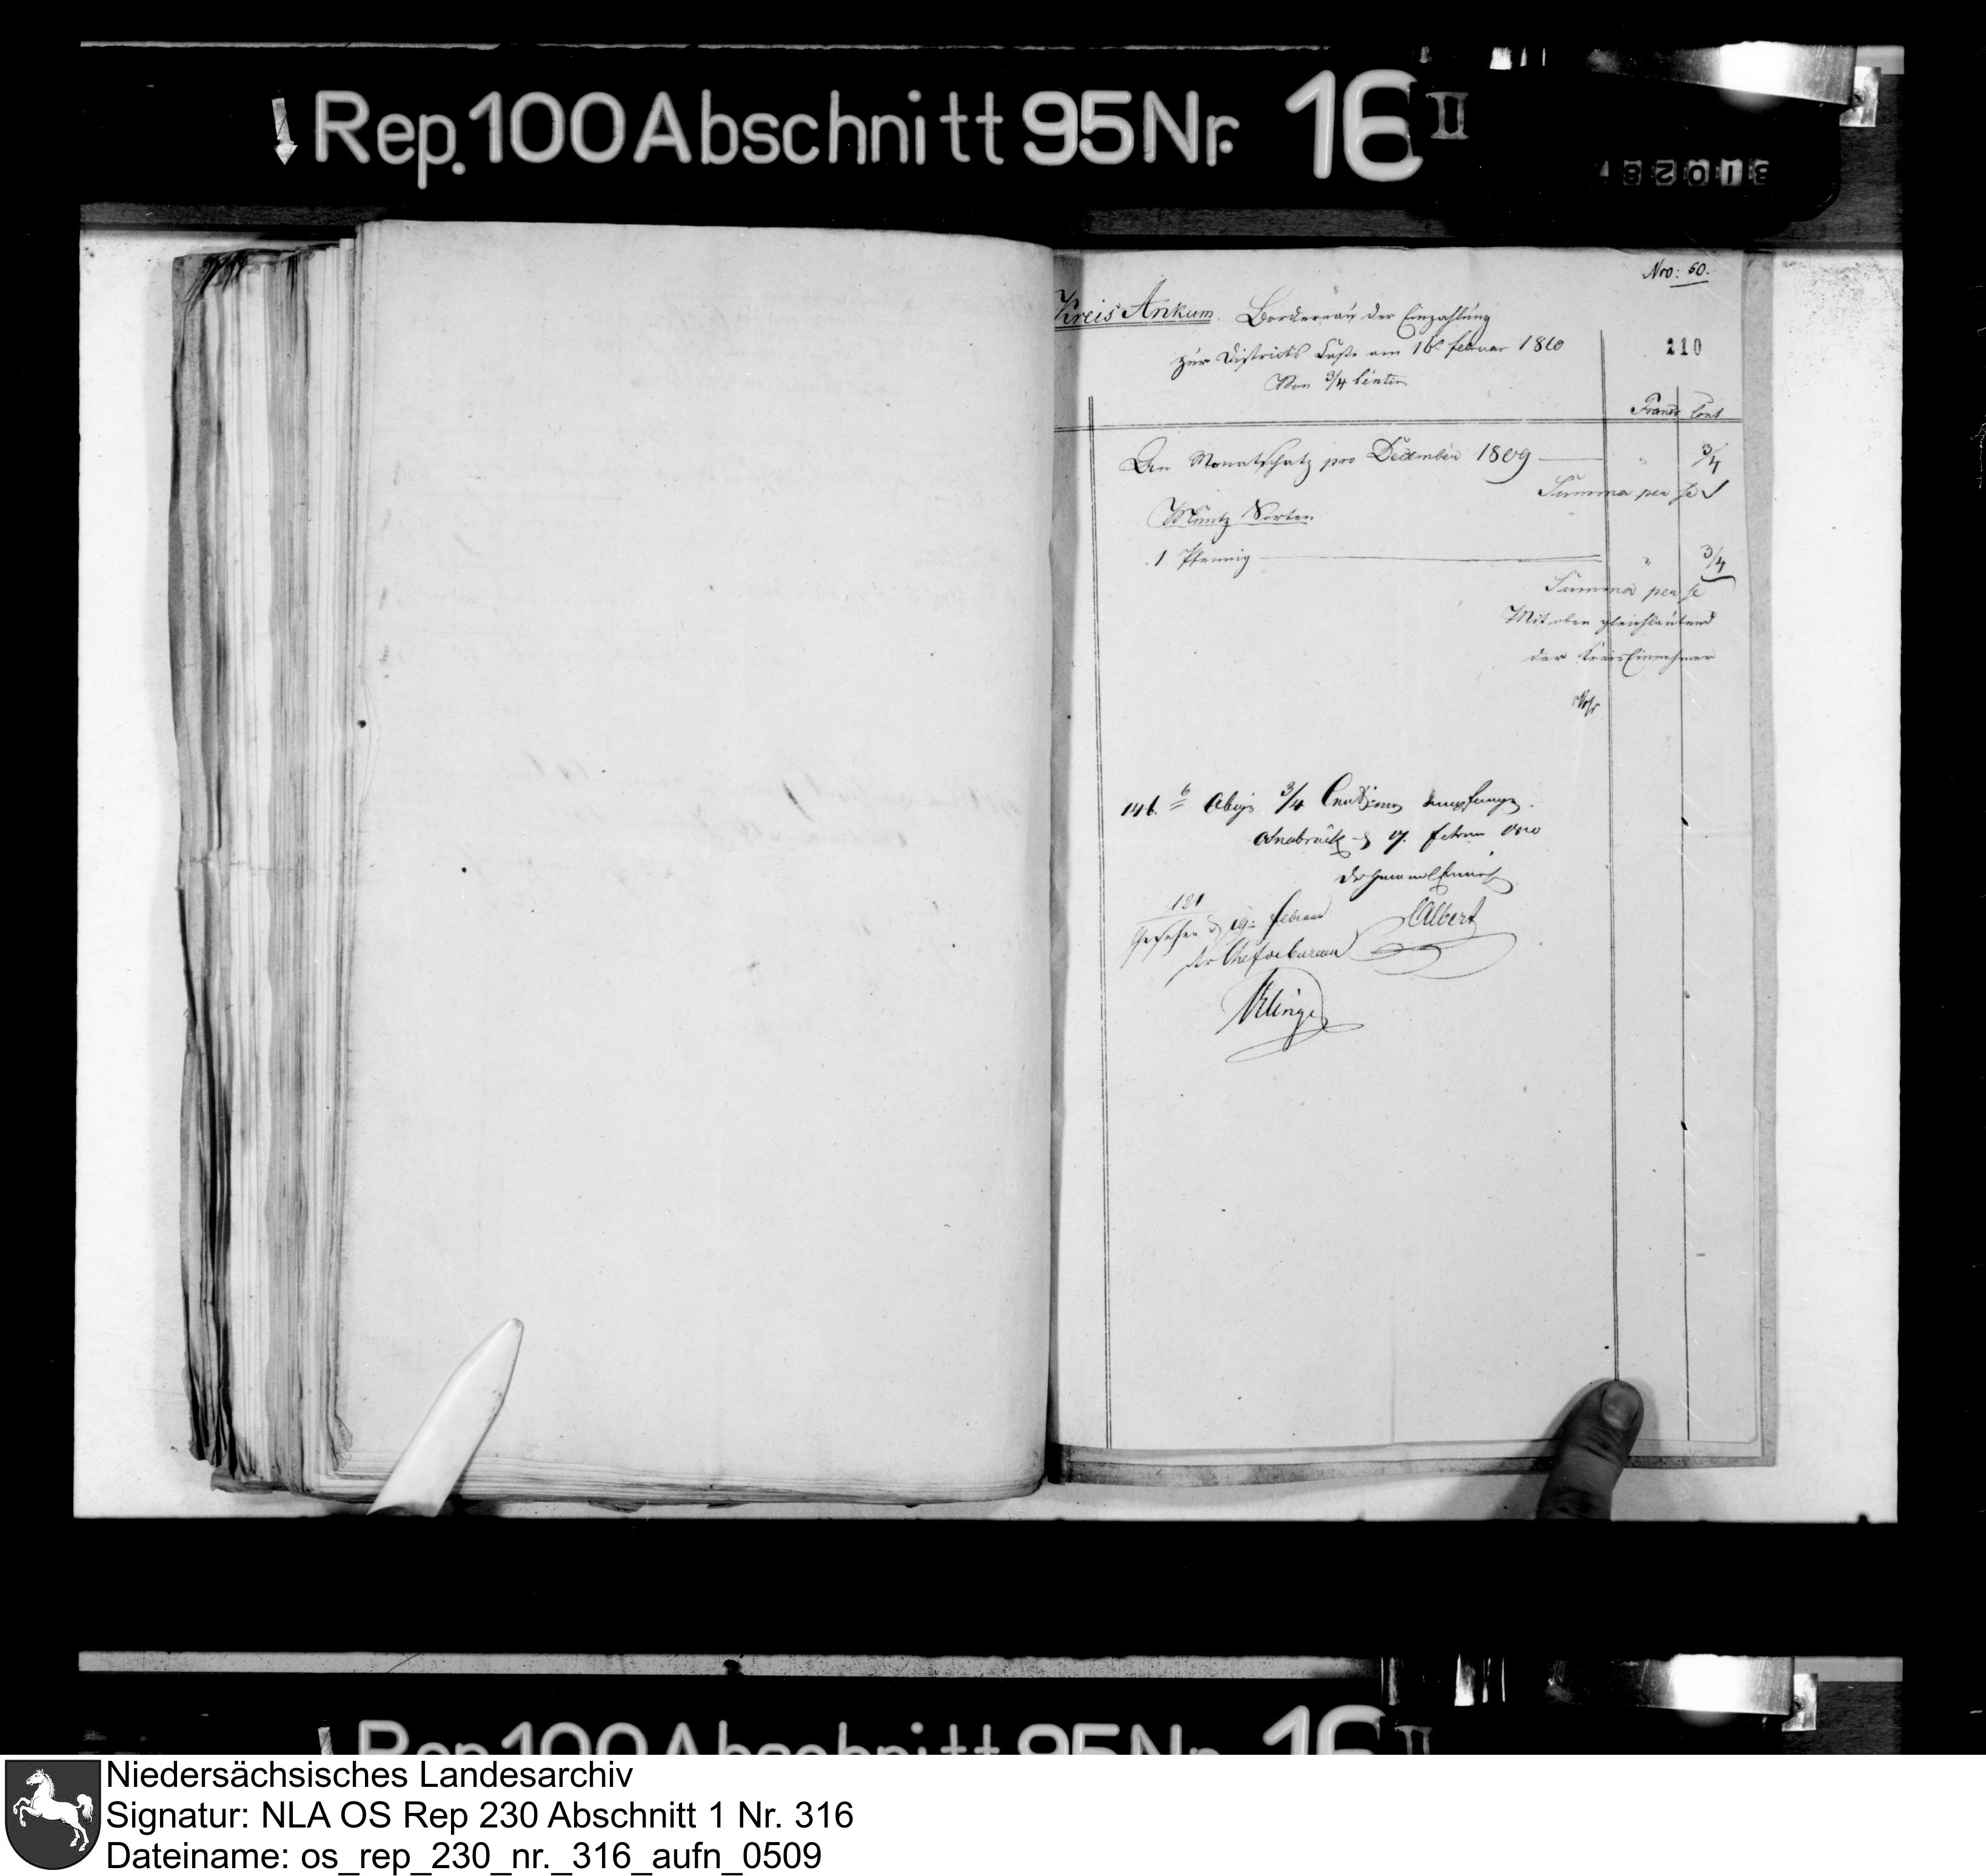 Rep. 100 Abschnitt 95 Nr. 16 II
Nro: 60.
Kreis Ankum. Bordereau der Einzahlung
zur Districts Casse am 16t februar 1810
Von 3/4 Centim
210
Francs Cent
An Monatschatz pro December 1809 — " 3/4
Summa per se
Müntz Sorten
1 Pfennig — " 3/4
Summa per se
Mit oben gleichlautend
der Kreis Einnehmer
146. 6 Obige 3/4 Centimes empfangen.
Osnabrück d 17. Februar 1810
Der General Einnehmer
Albert
121
Gesehen d 19t Februar
der Chef de bureau
Rep. 100 Abschnitt 95 Nr. 16 II
Niedersächsisches Landesarchiv
Signatur: NLA OS Rep 230 Abschnitt 1 Nr. 316
Dateiname: os_rep_230_nr._316_aufn_0509